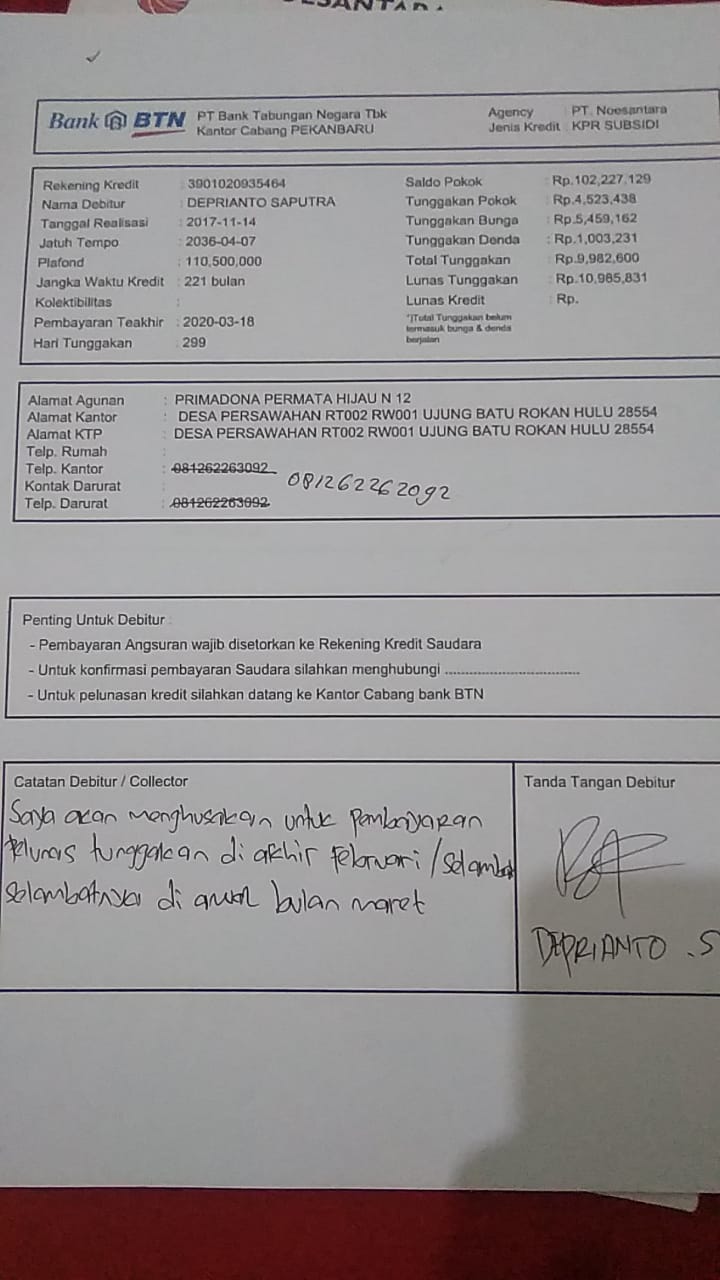 Bank BTN PT Bank Tabungan Negara Tbk
Kantor Cabang PEKANBARU
Agency : PT. Noesantara
Jenis Kredit : KPR SUBSIDI
Rekening Kredit : 3901020935464
Nama Debitur : DEPRIANTO SAPUTRA
Tanggal Realisasi : 2017-11-14
Jatuh Tempo : 2036-04-07
Plafond : 110,500,000
Jangka Waktu Kredit : 221 bulan
Kolektibilitas :
Pembayaran Teakhir : 2020-03-18
Hari Tunggakan : 299
Saldo Pokok : Rp.102,227,129
Tunggakan Pokok : Rp.4,523,438
Tunggakan Bunga : Rp.5,459,162
Tunggakan Denda : Rp.1,003,231
Total Tunggakan : Rp.9,982,600
Lunas Tunggakan : Rp.10,985,831
Lunas Kredit : Rp.
*)Total Tunggakan belum
termasuk bunga & denda
berjalan
Alamat Agunan : PRIMADONA PERMATA HIJAU N 12
Alamat Kantor : DESA PERSAWAHAN RT002 RW001 UJUNG BATU ROKAN HULU 28554
Alamat KTP : DESA PERSAWAHAN RT002 RW001 UJUNG BATU ROKAN HULU 28554
Telp. Rumah :
Telp. Kantor : 081262263092
Kontak Darurat : 081262262092
Telp. Darurat : 081262263092
Penting Untuk Debitur :
- Pembayaran Angsuran wajib disetorkan ke Rekening Kredit Saudara
- Untuk konfirmasi pembayaran Saudara silahkan menghubungi ..................................
- Untuk pelunasan kredit silahkan datang ke Kantor Cabang bank BTN
Catatan Debitur / Collector
Saya akan menghusakan untuk pembayaran
pelunas tunggakan di akhir Februari / selambat
selambatnya di awal bulan maret
Tanda Tangan Debitur
DEPRIANTO . S